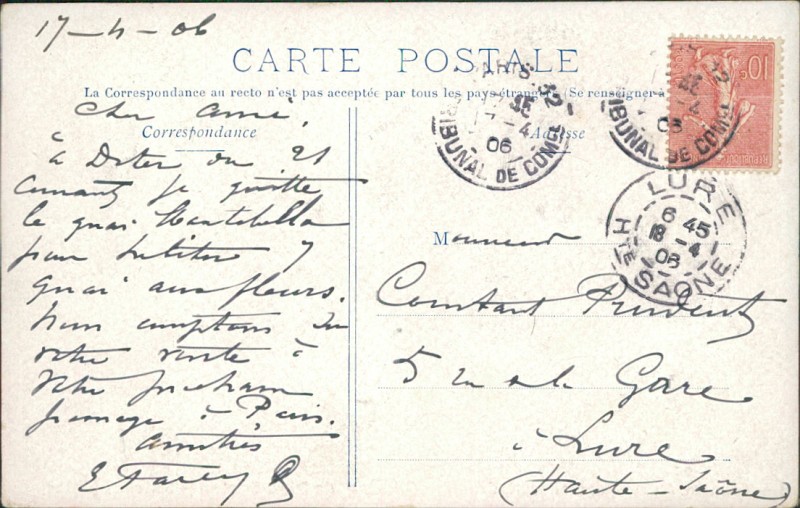 17-4-06
CARTE POSTALE
La Correspondance au recto n'est pas acceptée par tous les pays étrangers (Se renseigner à
Correspondance
Adresse
Cher ami,
à Dater du 21
courant je quitte
le quai Montebello
pour habiter 7
quai aux fleurs.
Nous comptons sur
votre visite à
votre prochain
passage à Paris.
Amitiés
PARIS 32
4
06
TRIBUNAL DE COMM
PARIS 32
TRIBUNAL DE COMM
10c
LURE
6 45
18 -4
06
HTE SAÔNE
Monsieur
Constant Prudent
5 rue de la Gare
à Lure
(Haute-Saône)